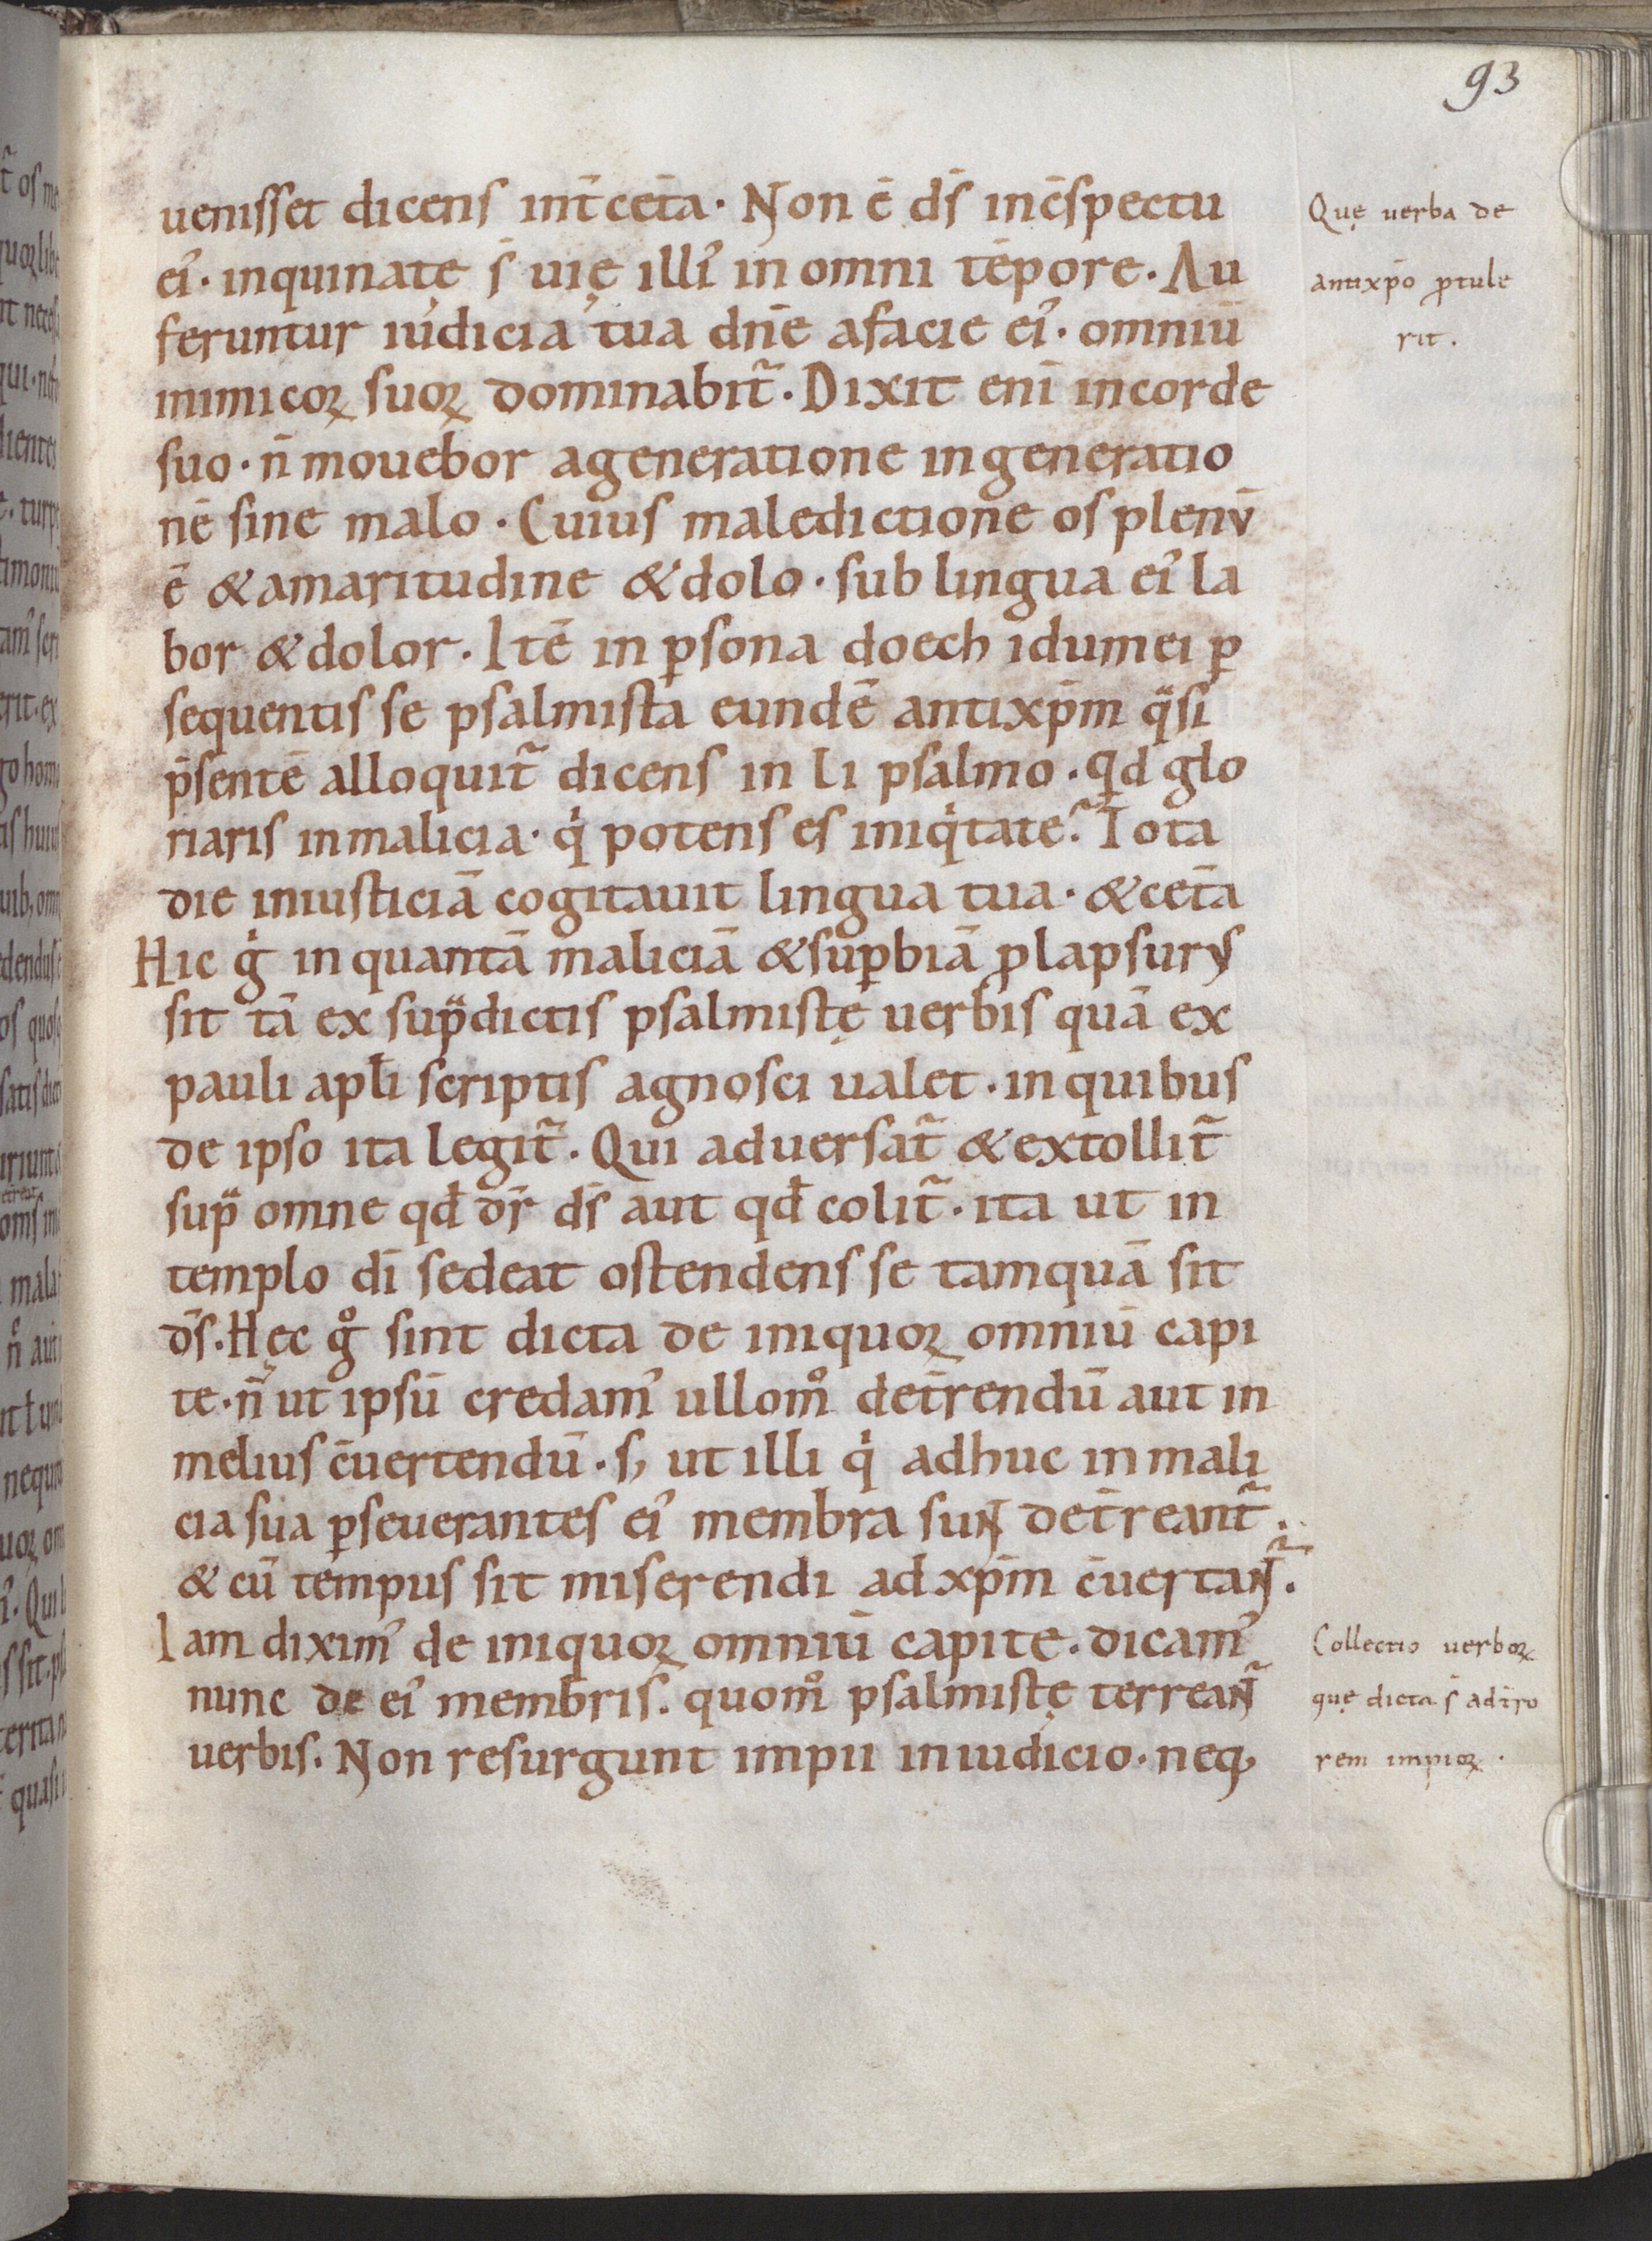 93
uenisset dicens int̄cet̄a. Non ē ds̄ in c̄spectu
ei᾽. inquinate s̄ uię illi᾽ in omni tēpore. Au
feruntur iudicia tua dn̄e a facie ei᾽. omniū
inimicoꝝ suoꝝ dominabit̃. Dixit enī in corde
suo. n̄ mouebor a generatione in generatio
nē sine malo. Cuius maledictione os plenū
ē & amaritudine & dolo. sub lingua ei᾽ la
bor & dolor. Itē in ꝑsona doech idumei ꝑ
sequentis se psalmista eundē antixp̄m qͣsi
p̄sentē alloquit̃ dicens in li psalmo. qͥd glo
riaris in malicia. qͥ potens es iniqͥtate? Tota
die iniusticiā cogitauit lingua tua. & cet̄a
Hic gͥ in quantā maliciā & suꝑbiā ꝓlapsurus
sit tā ex supͣdictis psalmistę uerbis quā ex
pauli apl̄i scriptis agnosci ualet. in quibus
de ipso ita legit̃. Qui aduersat̃ & extollit̃
supͣ omne qd̄ dr̄ ds̄ aut qd̄ colit̃. ita ut in
templo dī sedeat ostendens se tamquā sit
ds̄. Hęc gͦ sint dicta de iniquoꝝ omniū capi
te. n̄ ut ipsū credam᾽ ullomͦ det̄rendū aut in
melius c̄uertendū. s; ut illi qͥ adhuc in mali
cia sua ꝑseuerantes ei᾽ membra sunt det̄reant̃.
& cū tempus sit miserendi ad xp̄m c̄uertant̃.
Iam dixim᾽ de iniquoꝝ omniū capite. dicam᾽
nunc de ei᾽ membris. quomͦ psalmistę terreant̃
uerbis. Non resurgunt impii in iudicio. neq;
Quę uerba de
antixp̄o ꝓtule
rit.
Collectio uerboꝝ
quę dicta s̄ ad t̄ro
rem impioꝝ.